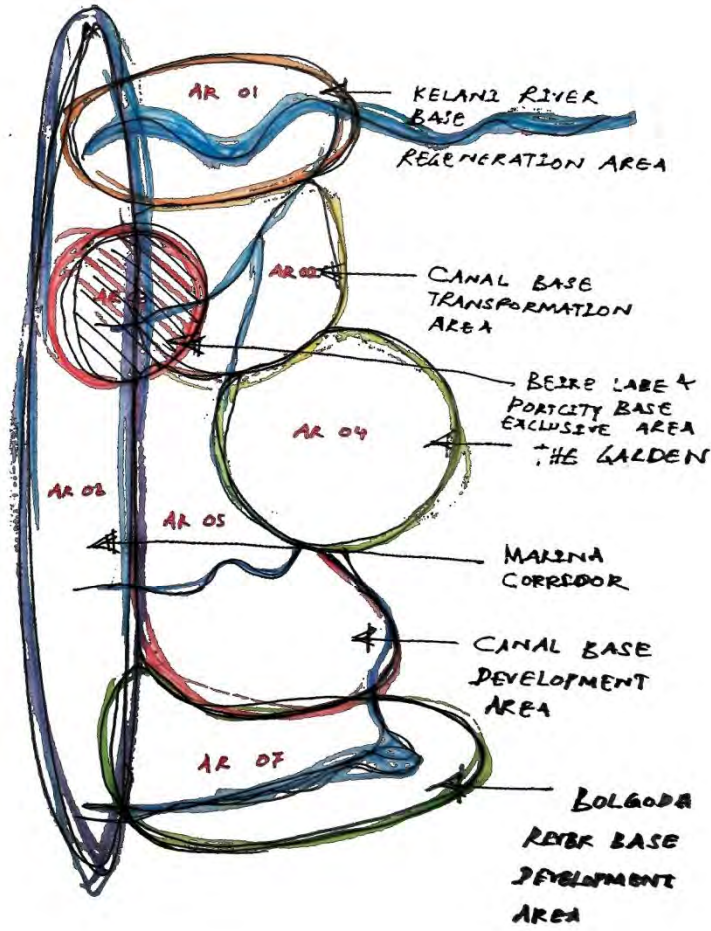 AR 01
KELANI RIVER
BASE
REGENERATION AREA
AR 02
CANAL BASE
TRANSFORMATION
AREA
AR
BEIRE LABE &
PORTCITY BASE
EXCLUSIVE AREA
AR 04
THE GARDEN
AR 03
AR 05
MARINA
CORRIDOR
CANAL BASE
DEVELOPMENT
AREA
AR 07
BOLGODA
RIVER BASE
DEVELOPMENT
AREA